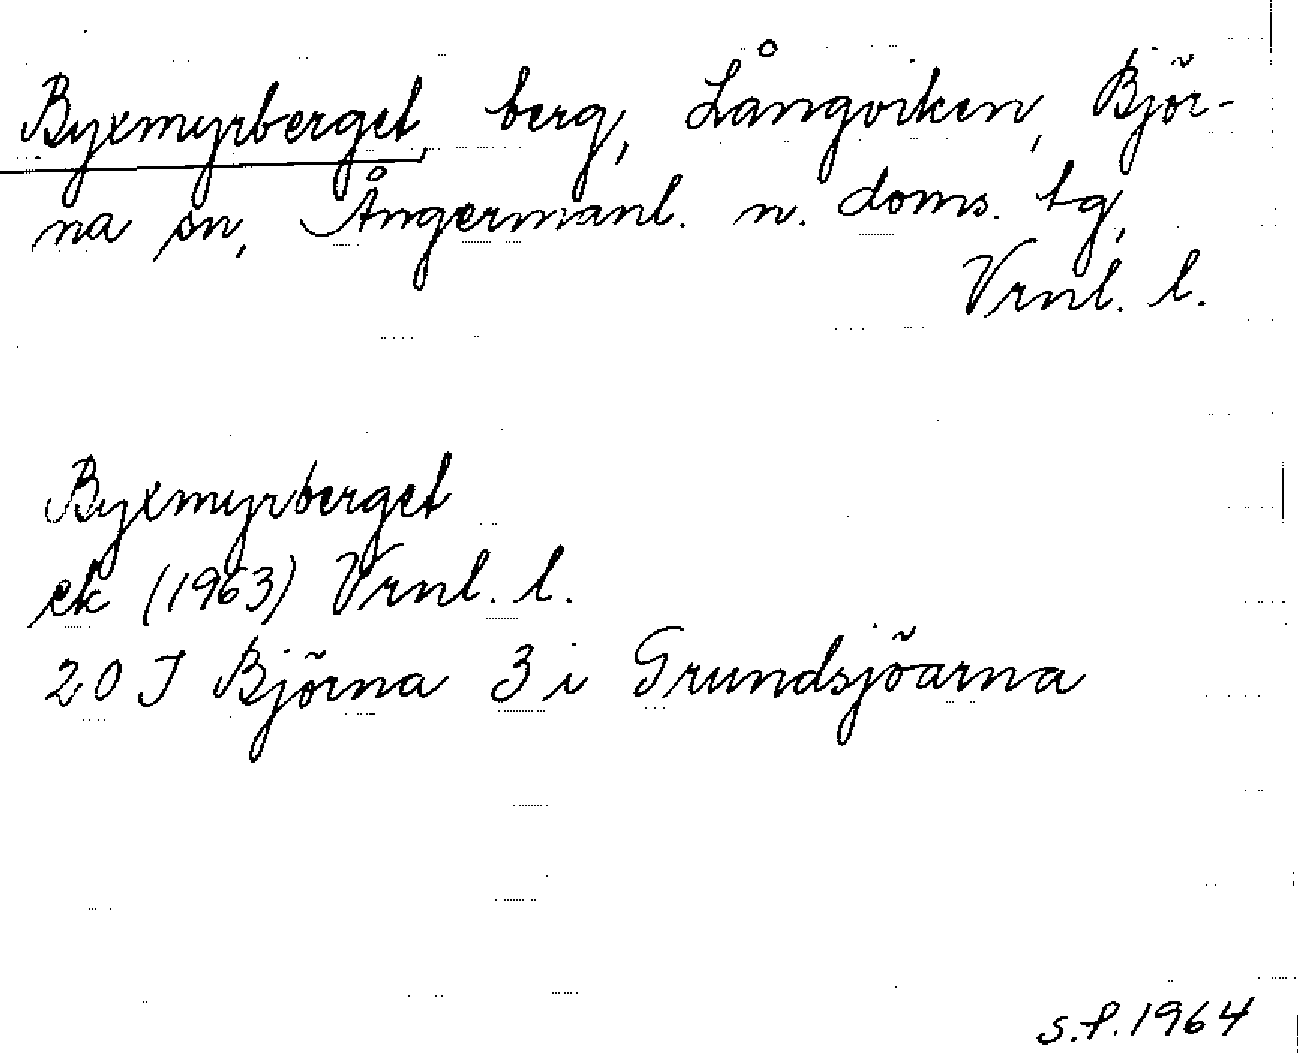 Byxmyrberget, berg, Långviken, Björ-
na sn, Ångermanl. n. doms. tg,
Vrnl. l.
Byxmyrberget
ek (1963) Vrnl. l.
20 J Björna 3 i Grundsjöarna
s.f. 1964